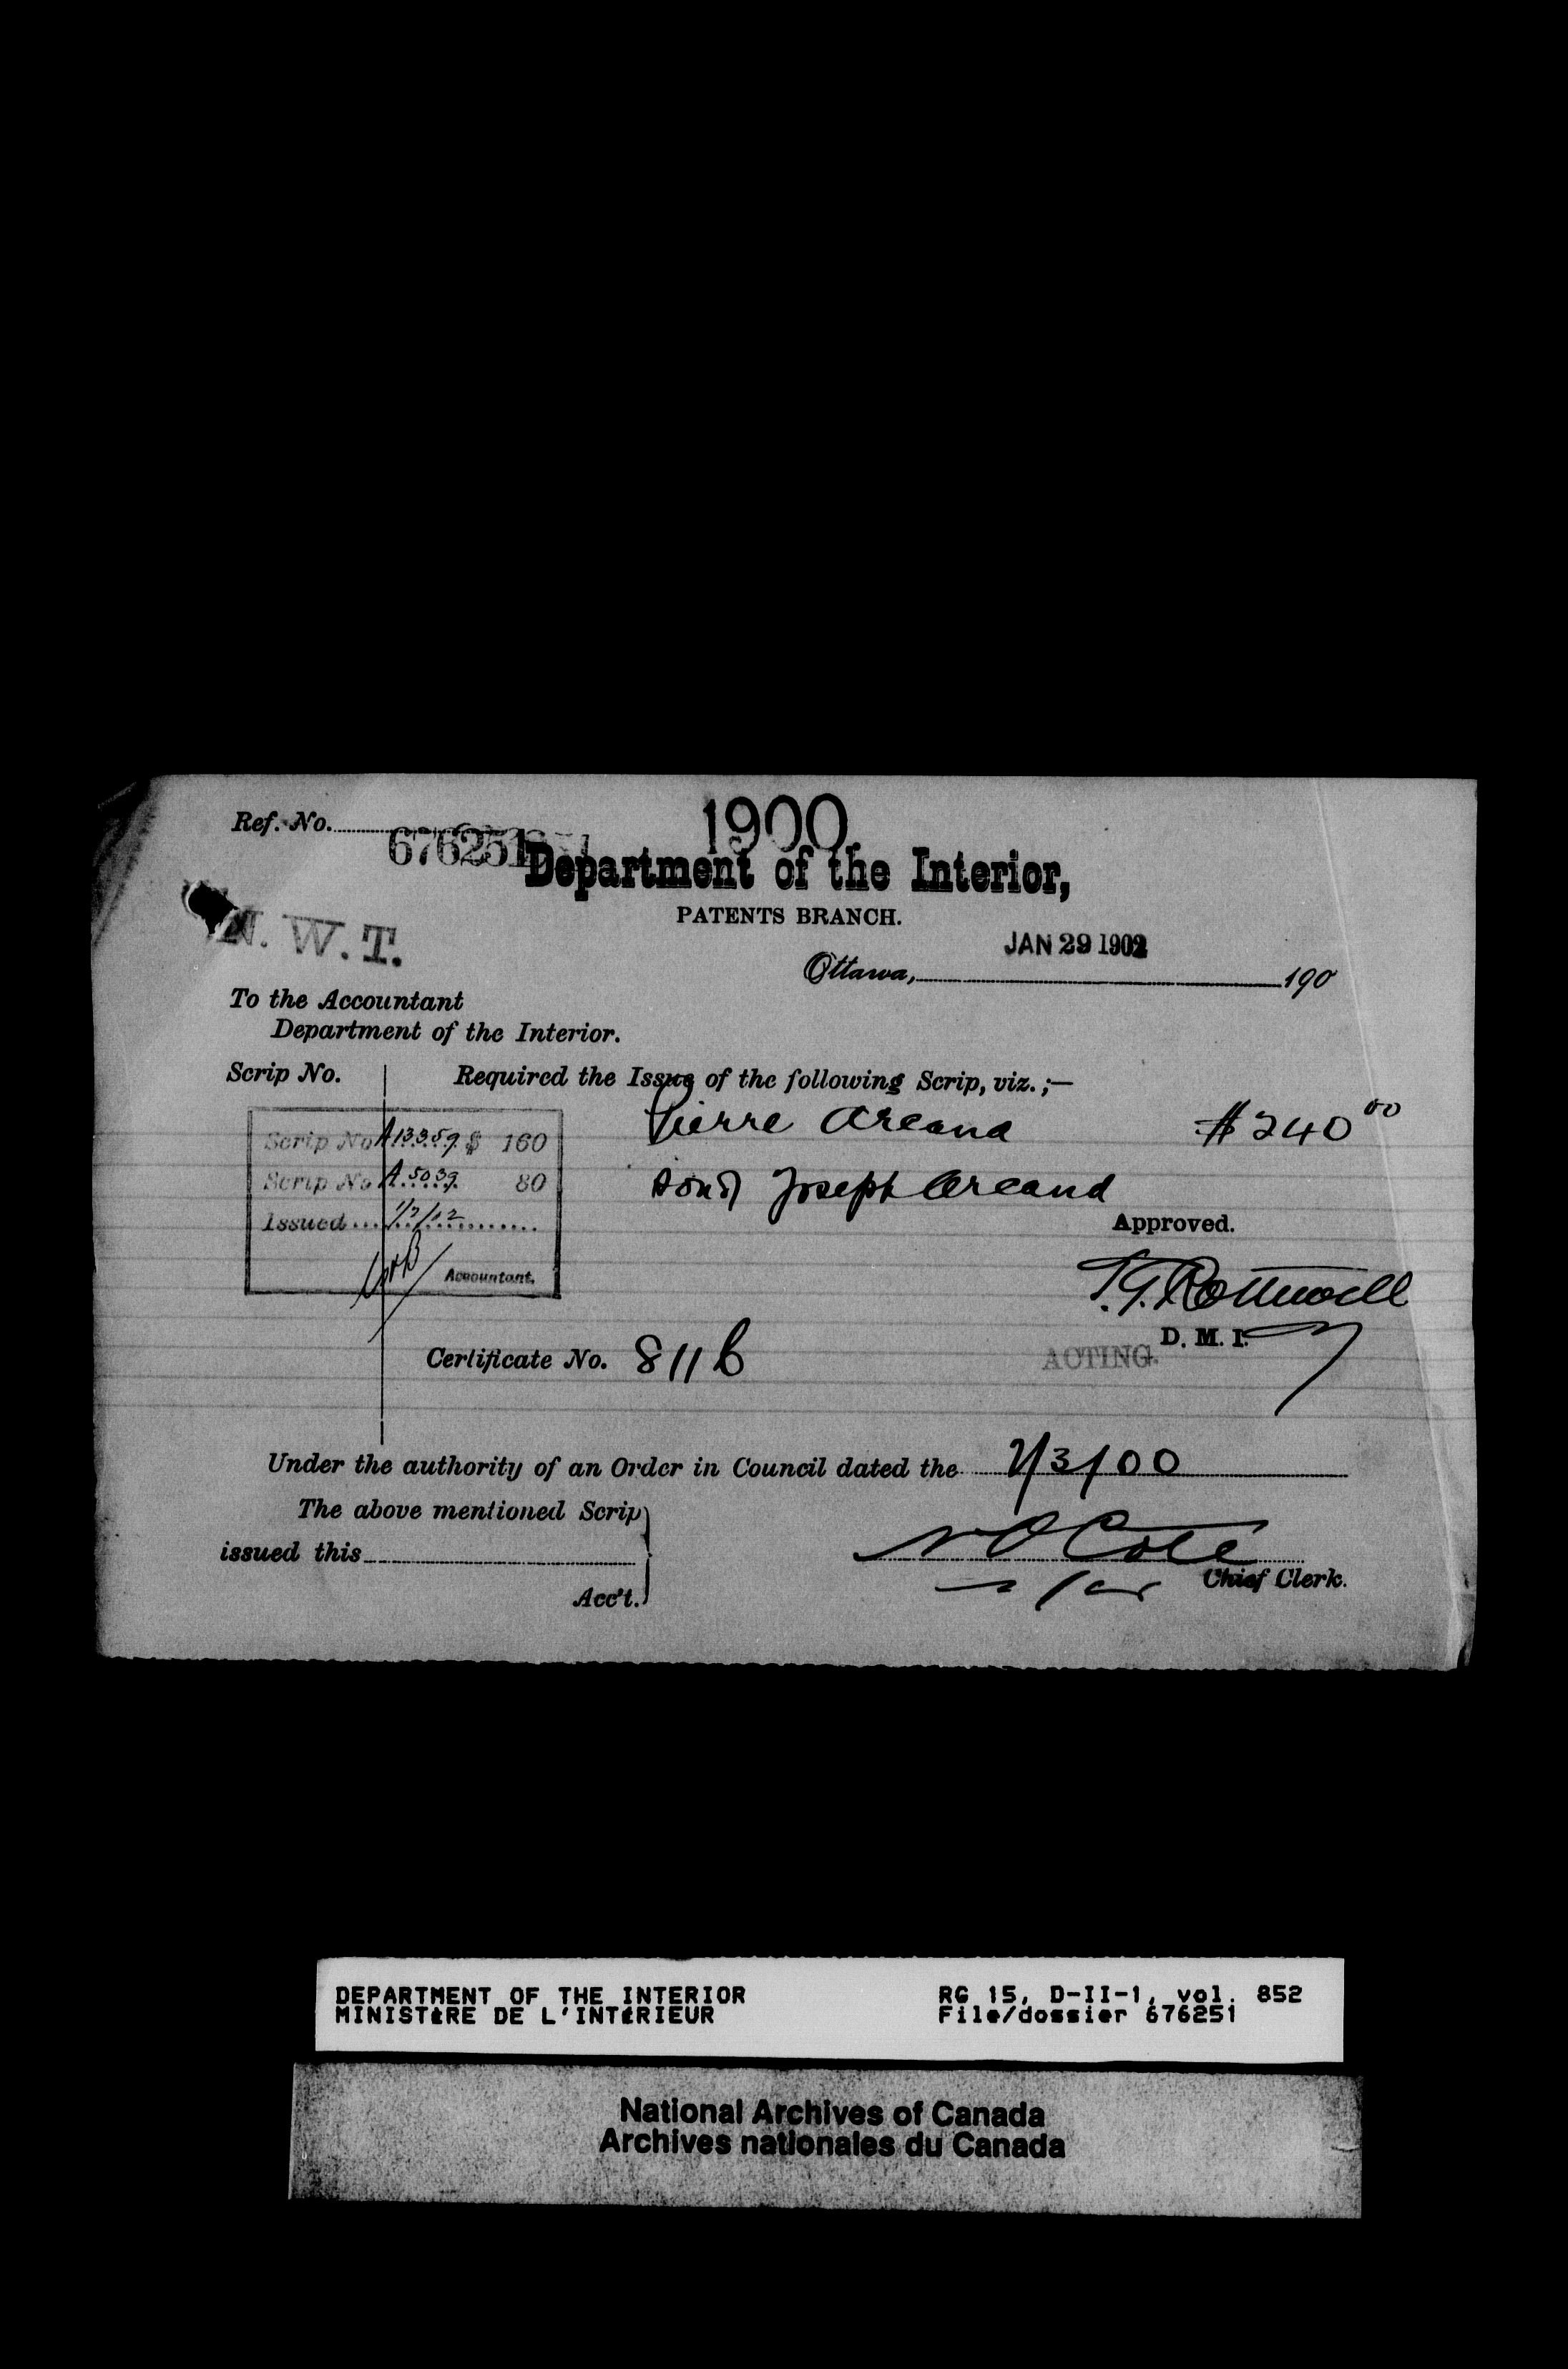 Ref. No. 676251
1900
Department of the Interior,
PATENTS BRANCH.
N. W. T.
JAN 29 1902
Ottawa, 190
To the Accountant
Department of the Interior.
Scrip No.
Required the Issue of the following Scrip, viz.;—
Pierre Arcand $240 00
Scrip No A13359 $ 160
son of Joseph Arcand
Scrip No A 5039 80
Issued 1/2/02
Accountant.
Approved.
T.G. Rothwell
D. M. I.
ACTING.
Certificate No. 811 b
Under the authority of an Order in Council dated the 2/3/00
The above mentioned Scrip
issued this
Acc't.
N O Cote
Chief Clerk.
DEPARTMENT OF THE INTERIOR
MINISTÈRE DE L'INTÉRIEUR
RG 15, D-II-1, vol. 852
File/dossier 676251
National Archives of Canada
Archives nationales du Canada